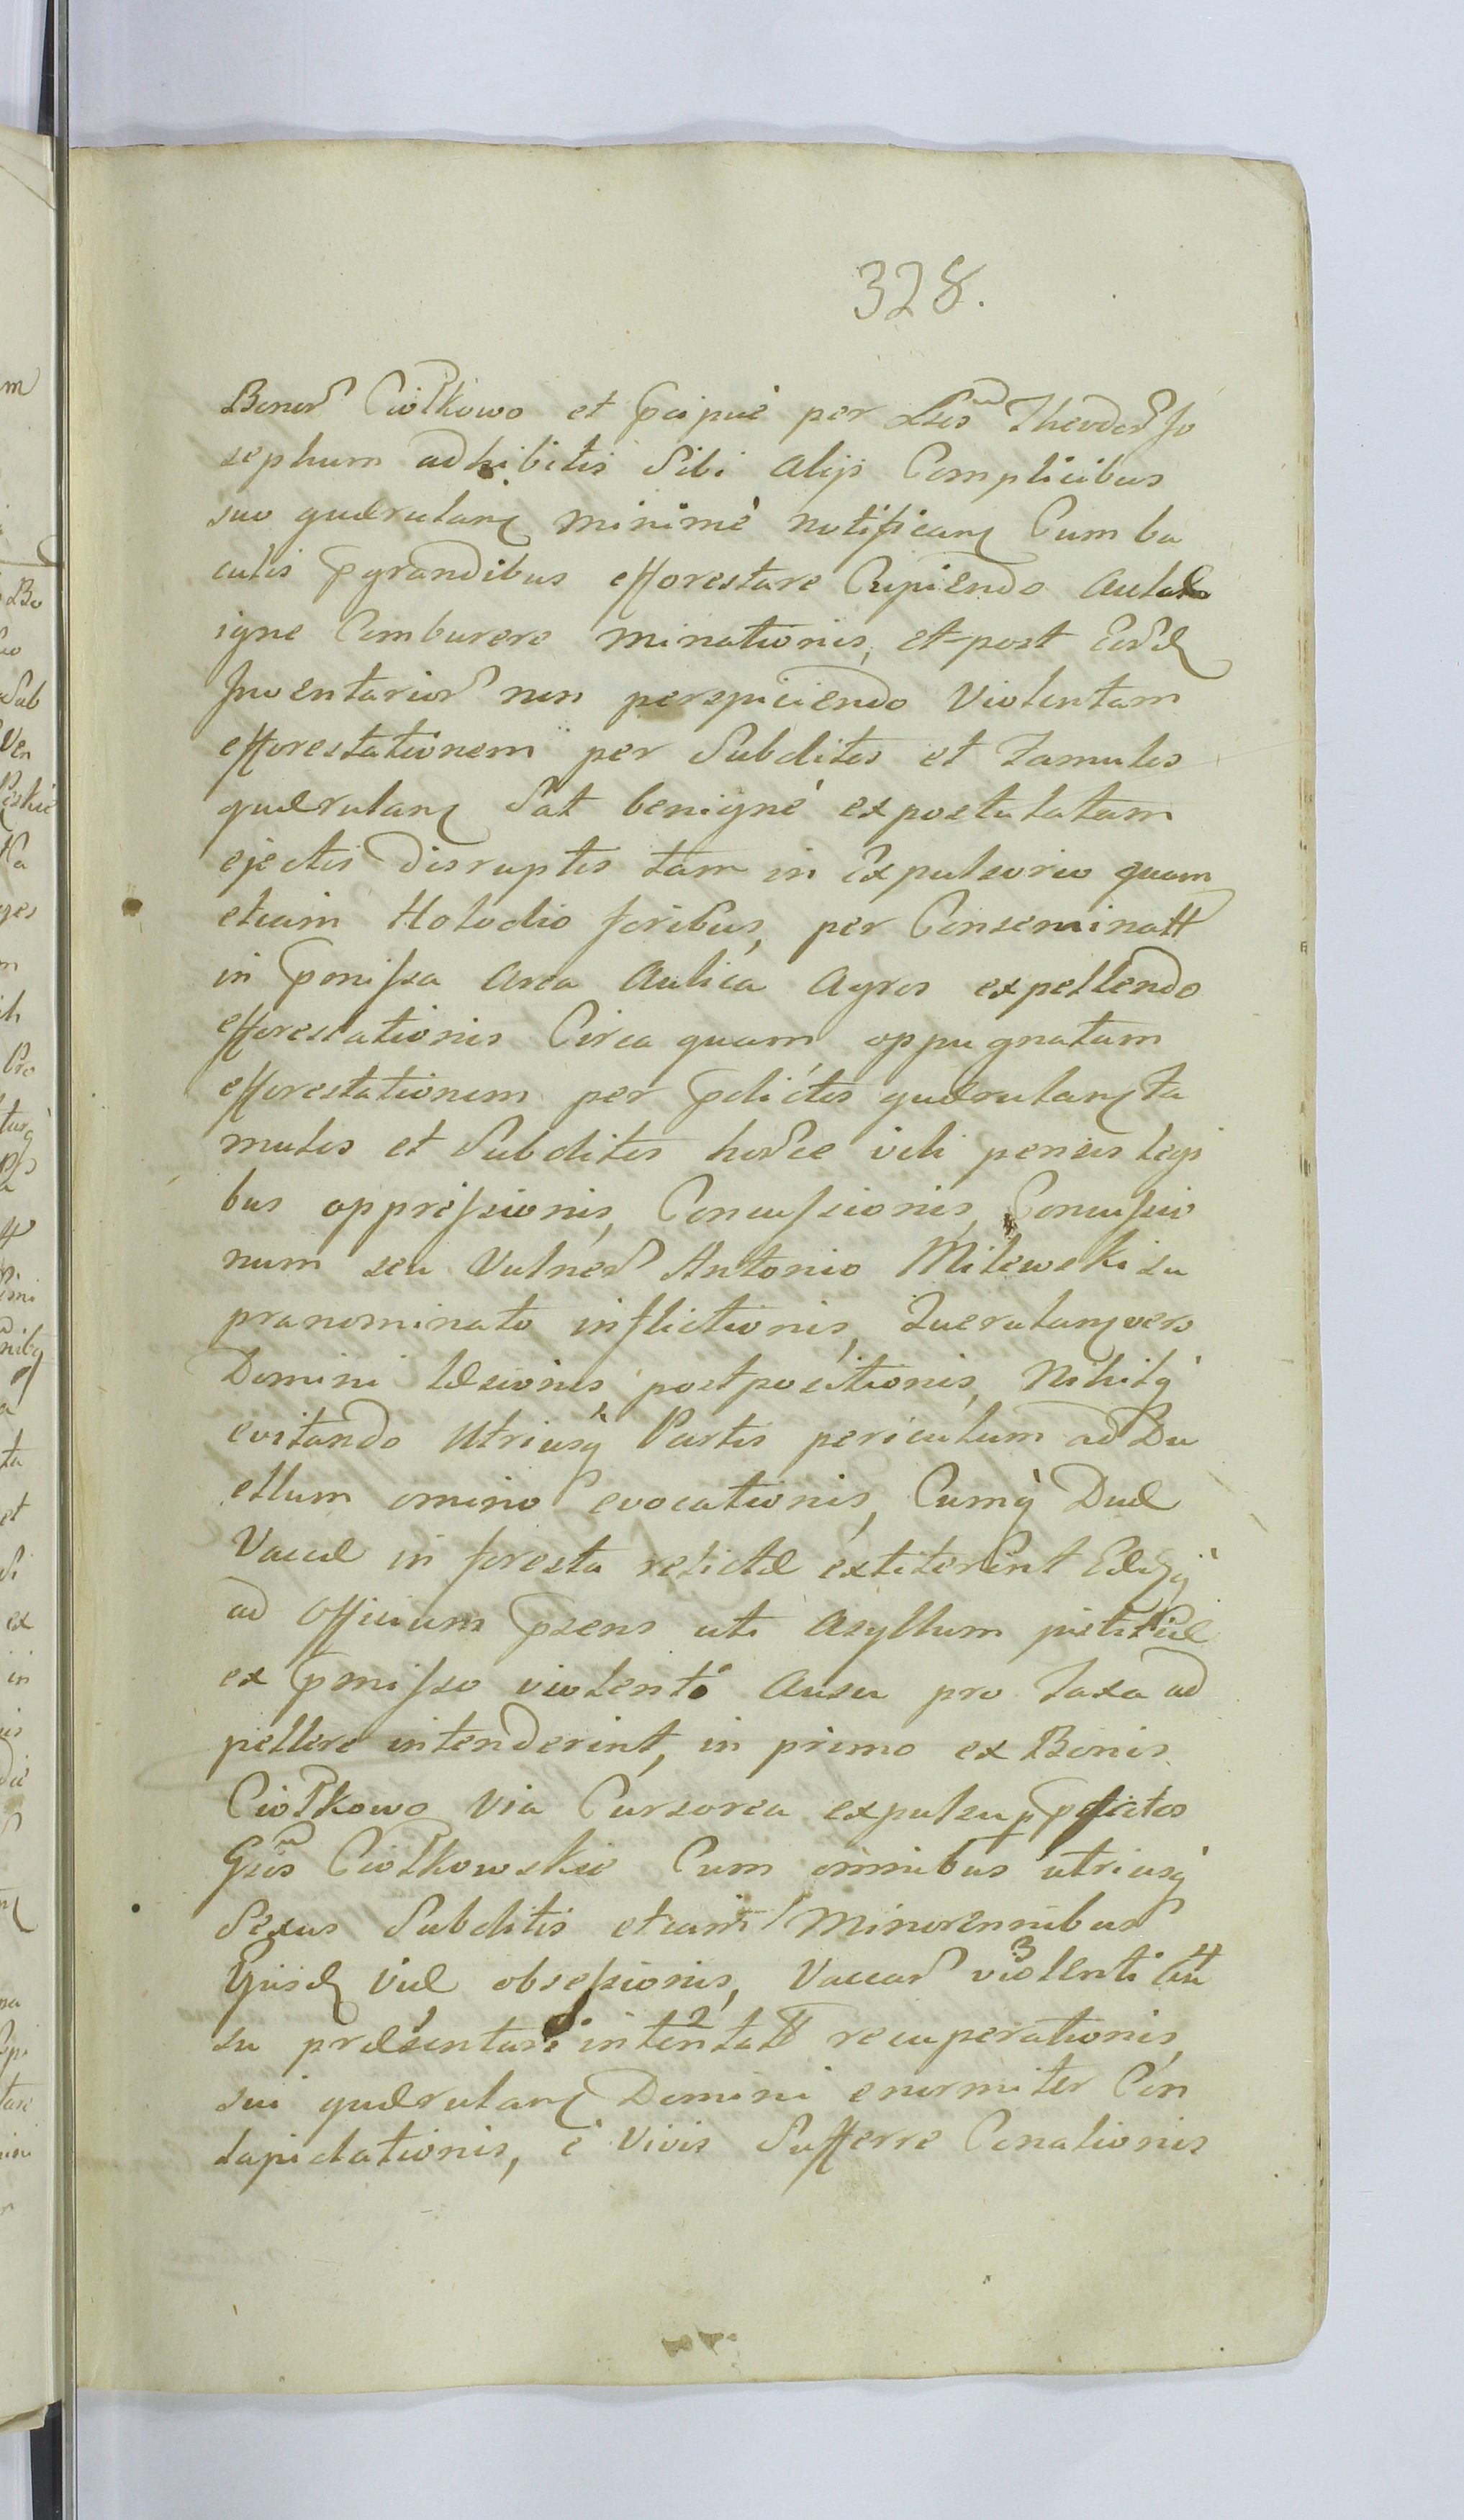 328.
Bonor Ciołkowo et pcipuè per Theodor Jo
sephum adhibitis Sibi alijs Complicibus
suo quærulanɱ minimè notificanɱ Cum ba
culis pgrandibus efforestare Cupiendo
igne Comburere minationis, et post Eord
Inventarior non perspiciendo Violentam
efforestationem per Subditos et Famulos
quærulanɱ Sat benignè expostulatam
ejectis disruptis tam in Expulsorio quam
etiam Holodio foribus, per Conseminatt
in pmissa Area Aulica Agros expellendo
efforestationis Circa quam oppugnatam
efforestationem per pdictos quærulanɱ Fa
mulos et Subditos hosce viti penius legi
bus oppressionis, Concussionis, Concussio
num seu Vulner Antonio Milewski su
pranominato inflictionis, Querulanɱ vero
Domini læsionis postpositionis, Nihilq
evitando Utriusq Partis periculum ad Du
ellum omino evocationis, Cumq Duæ
Vaccæ in foresta relictæ extiterint Easq
ad Officium psens uti Asyllum justitiæ
ex pmisso violento Ausu pro Taxa ad
pellere intenderint, in primo ex Bonis
Ciołkowo Via Cursorea expulsu p pdictos
Gsos Ciołkowskie Cum omnibus utriusq
Sexus Subditis etiam Minorennibus
Ejusd Viæ obsessionis, Vaccar violenti Au
su præsentari intentatt recuperationis,
sui quærulanɱ Domini enormiter Con
lapidationis, è Vivis Sufferre Conationis